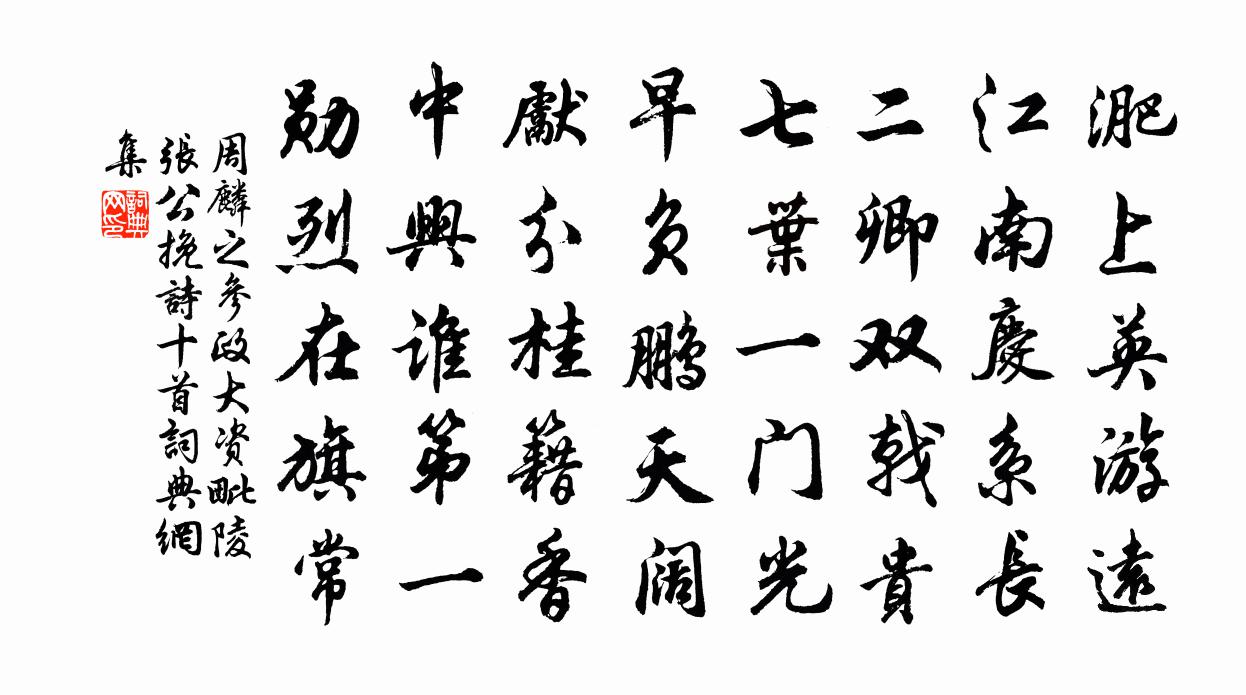 淝上英游遠
江南慶系長
二卿双戟貴
七葉一门光
早负鹏天阔
獻分桂籍香
中興谁第一
勋烈在旗常
周麟之参政大资毗陵
張公挽詩十首詞典網
集
詞典網印